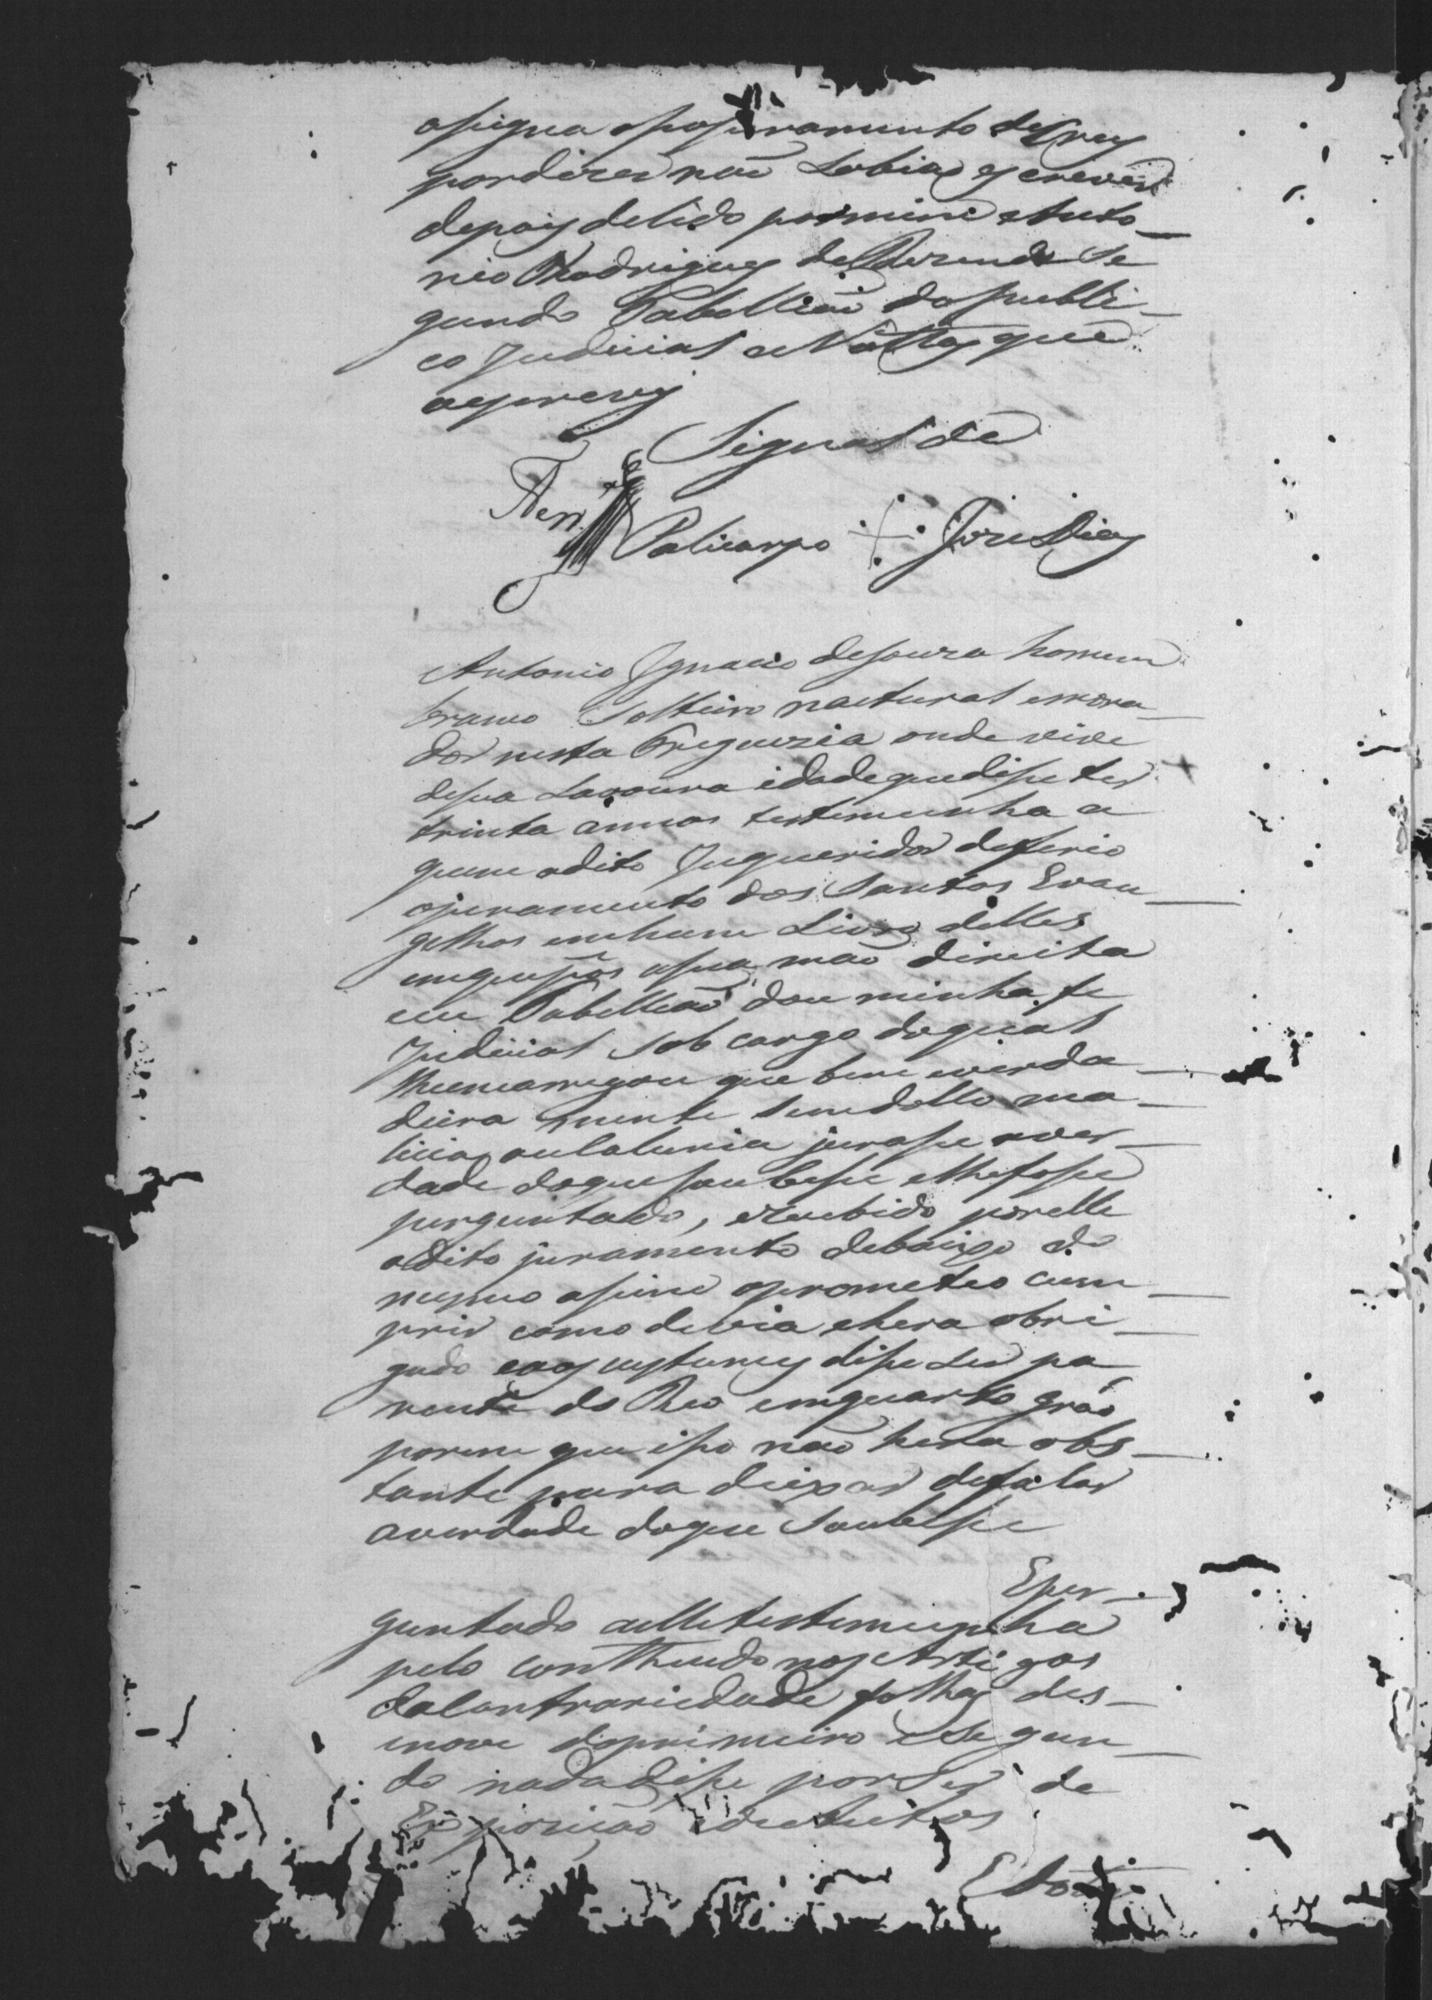 asigna o seo juramento de Cruz
por dizer naõ Sabia escrever
depois de lido por mim Anto-
nio Rodrigues de Rezende Se
gundo Tabelliaõ do publi-
co Judicial e Nottas que
aescrevy
Signal de
Ferr.ª Policarpo José Dias
Antonio Ignacio desouza homem
branco Solteiro natural emora-
dor nesta Freguezia onde vive
desua Lavoura idade que disse ter
trinta annos testemunha a
quem odito Inqueridor deferio
ojuramento dos Santos Evan-
gelhos emhum Livro delles
em que pôs asua maõ direita
eeu Tabelliaõ dou minha fe
Judicial sob cargo doqual
lhe encarregou que bem everda-
deira mente sem dollo ma-
licia oucalunia jurasse aver-
dade doque soubesse elhefosse
perguntado, erecebido porelle
odito juramento debaixo do
mesmo asim oprometeo cum-
prir como devia ehera obri-
gado eaos custumes disse ser pa-
rente do Reo emquarto gráo
porem que isso não hera obs-
tante para deixar defalar
averdade doque soubesse
Eper-
guntado aelle testemunha
pelo conthiudo nos Artigos
daContrariedade folhas des-
enove doprimeiro eSegun-
do nada disse por Ser de
Expozição edeAutos
E do